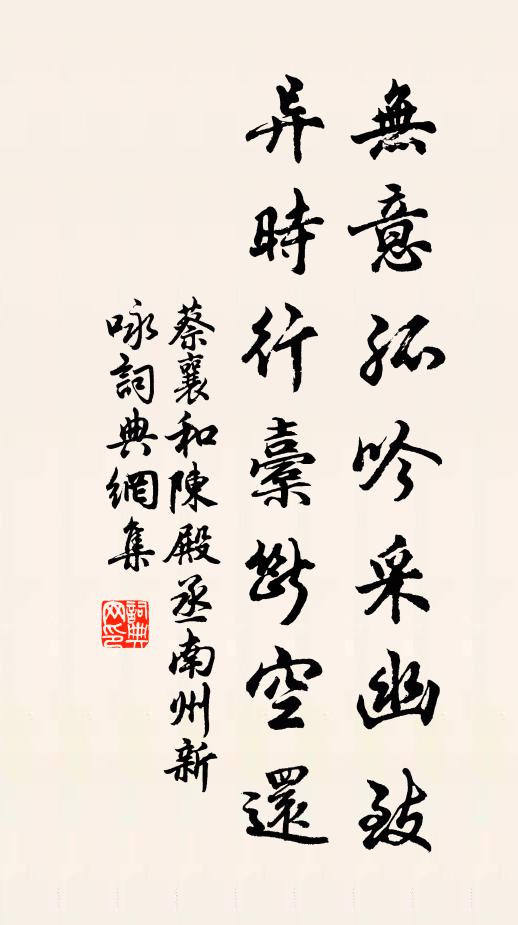 無意孤吟采幽致
异時行橐斷空還
蔡襄和陳殿丞南州新
咏詞典網集
詞典网印